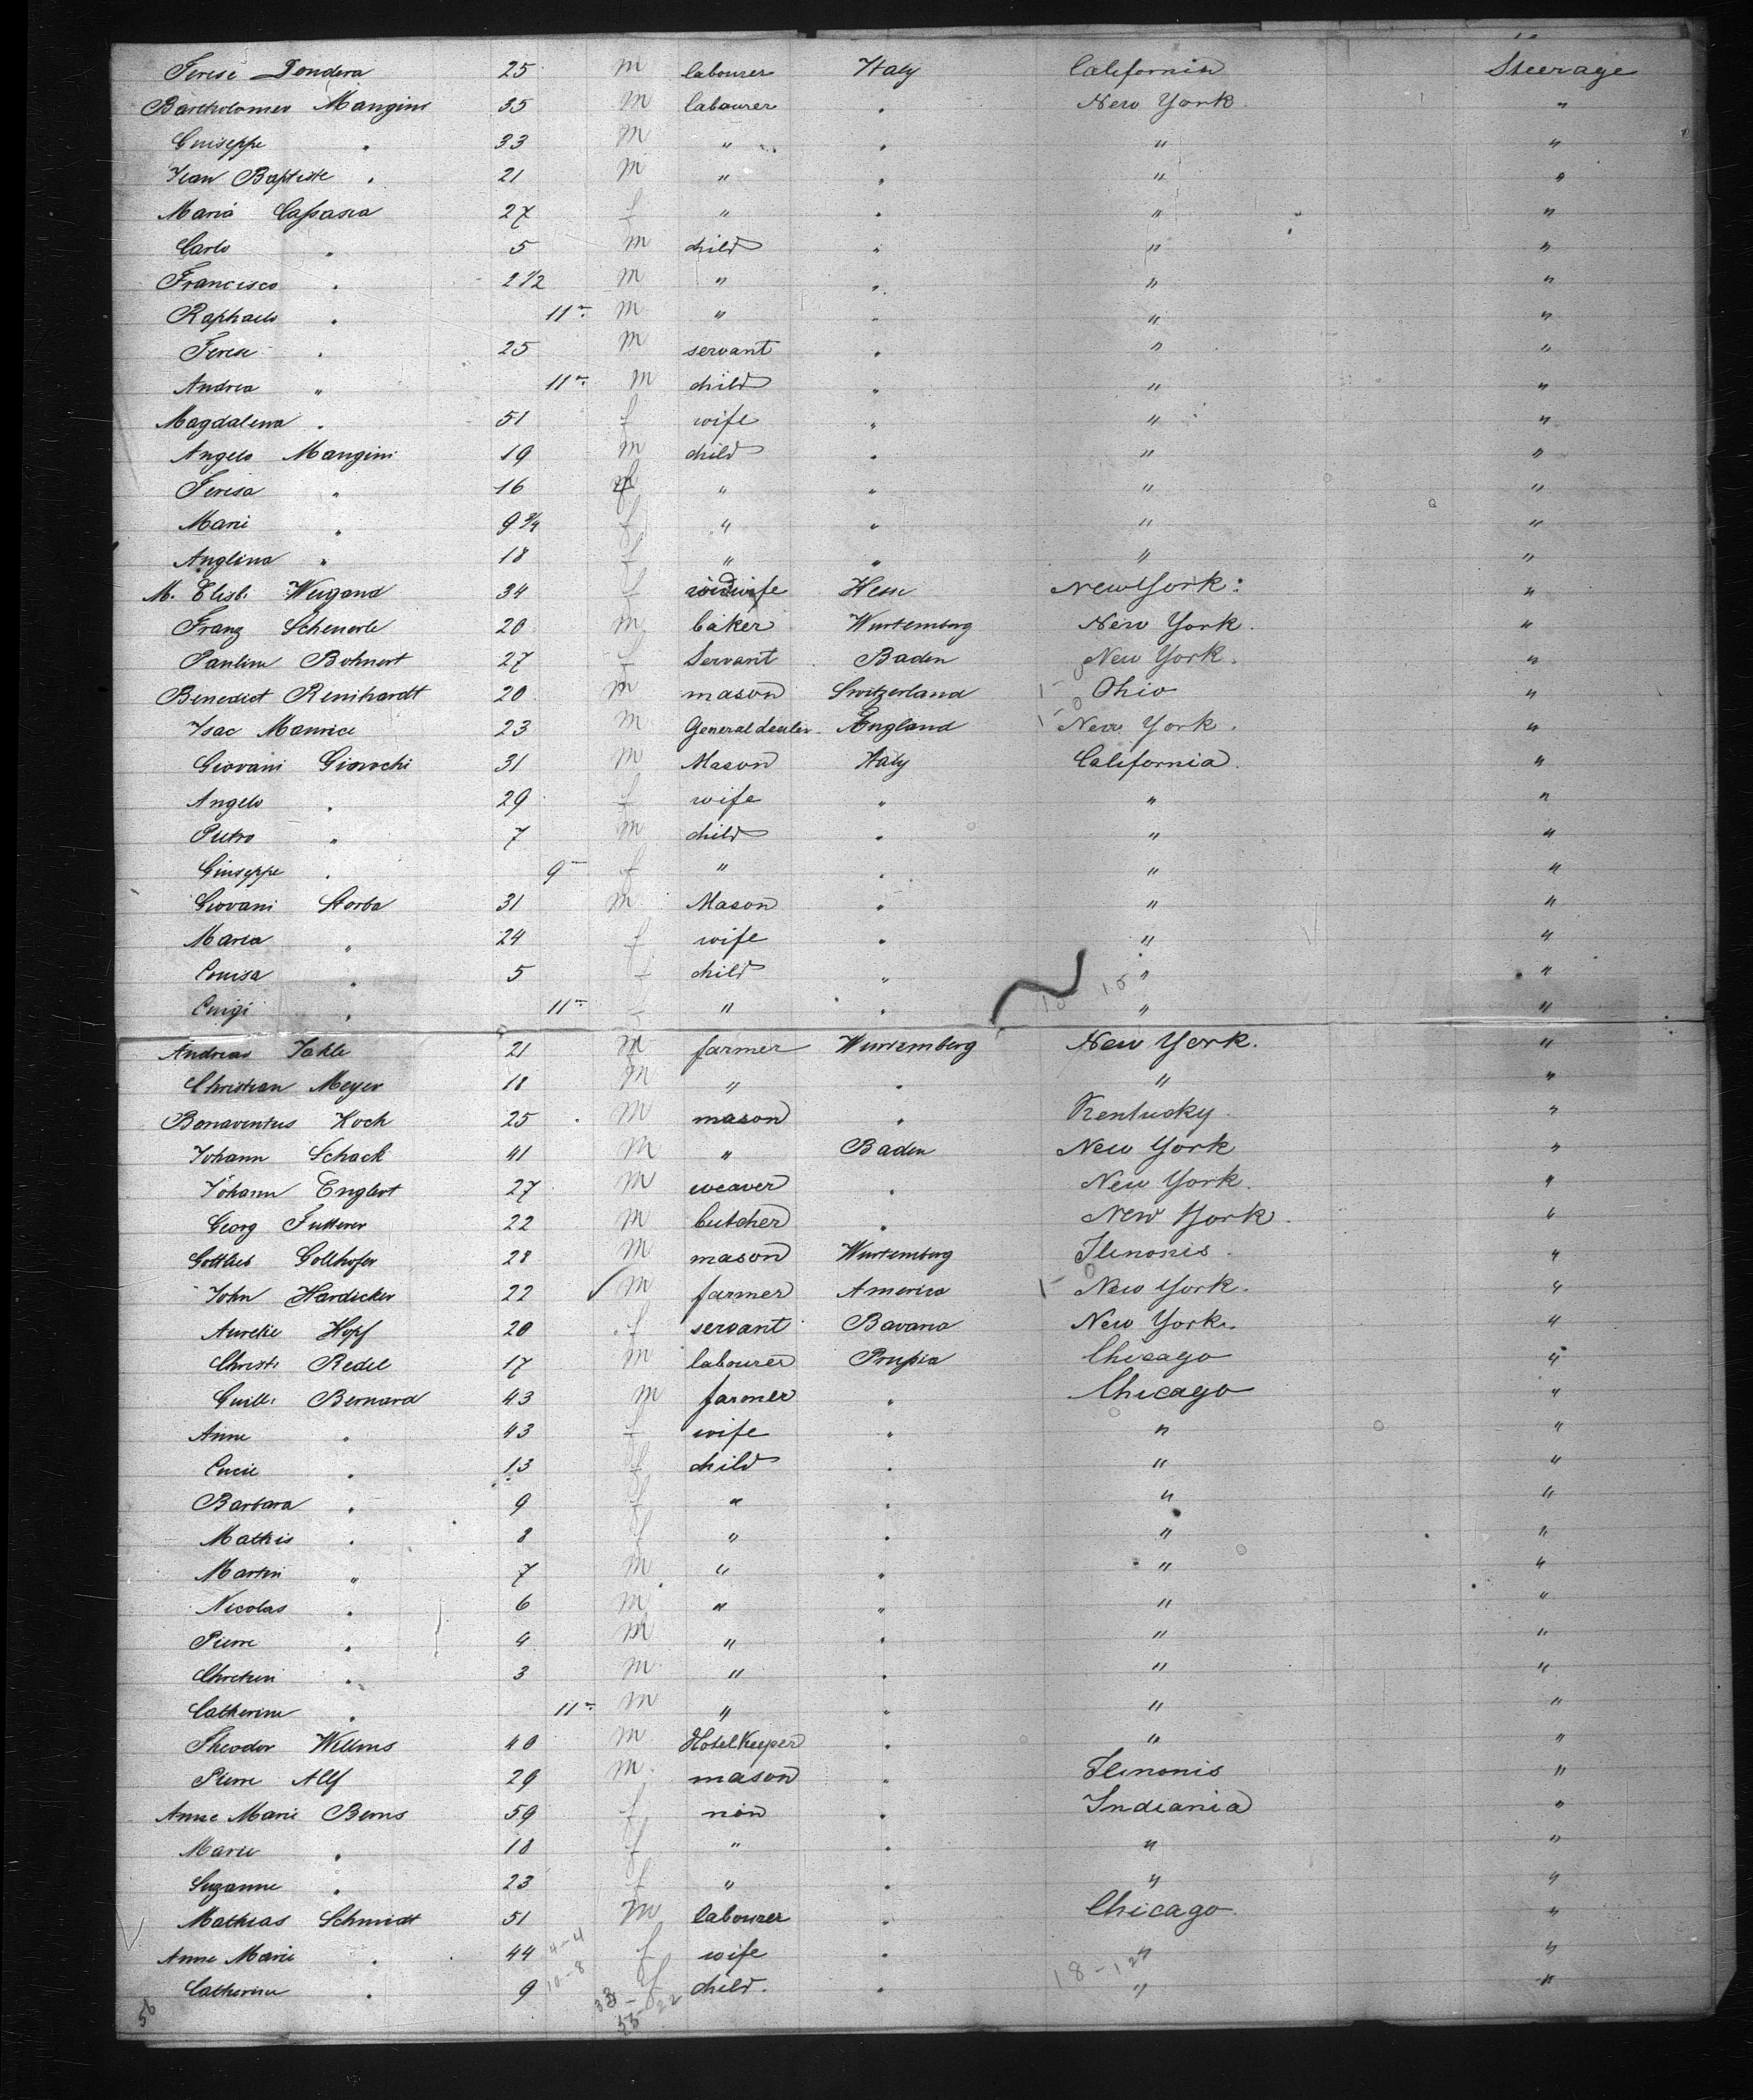 Terese Dondera 25 m labourer Italy California Steerage
Bartholomeo Mangini 35 m labourer " New York "
Guiseppe " 33 m " " " "
Jean Baptiste " 21 m " " " "
Maria Cassasia 27 f " " " "
Carlo " 5 m child " " "
Francisco " 2 1/2 m " " " "
Raphaelo " 11m m " " " "
Terese " 25 m servant " " "
Andrea " 11m m child " " "
Magdalena " 51 f wife " " "
Angelo Mangini 19 m child " " "
Teresa " 16 f " " " "
Marie " 9 3/4 f " " " "
Anglina " 18 f " " " "
M. Elisb. Weigand 34 f midwife Hesse New York "
Franz Scheuerle 20 m baker Wurtemberg New York "
Pauline Bohnert 27 f Servant Baden New York "
Benedict Reinhardt 20 m mason Switzerland Ohio "
Isac Maurice 23 m General dealer England New York "
Giovani Giovochi 31 m Mason Italy California "
Angelo " 29 f wife " " "
Pietro " 7 m child " " "
Giuseppe " 9m f " " " "
Giovani Storba 31 m Mason " " "
Maria " 24 f wife " " "
Louisa " 5 f child " " "
Luigi " 11m f " " " "
10 15
Andreas Jakle 21 m farmer Wurtemberg New York "
Christian Meyer 18 m " " " "
Bonaventus Koch 25 m mason " Kentucky "
Johann Schack 41 m " Baden New York "
Johann Englert 27 m weaver " New York "
Georg Futterer 22 m butcher " New York "
Gottlieb Gollhofer 28 m mason Wurtemberg Ilinonis "
John Hardicker 22 m farmer America New York "
Aurelie Hopf 20 f servant Bavaria New York "
Christ. Redel 17 m labourer Prussia Chicago "
Guill. Bernard 43 m farmer " Chicago "
Anne " 43 f wife " " "
Lucie " 13 f child " " "
Barbara " 9 f " " " "
Mathis " 8 f " " " "
Martin " 7 m " " " "
Nicolas " 6 m " " " "
Pierre " 4 m " " " "
Chretien " 3 m " " " "
Catherine " 11m m " " " "
Theodor Willems 40 m Hotel Keeper " " "
Pierre Alf 29 m mason " Ilinonis "
Anne Marie Berns 59 f non " Indiania "
Marie " 18 f " " " "
Suzanne " 23 f " " " "
Mathias Schmidt 51 m labourer " Chicago "
Anne Marie " 44 4-4 f wife " " "
Catherine " 9 10-8 f child. " 18-12 " "
56 33-22
55